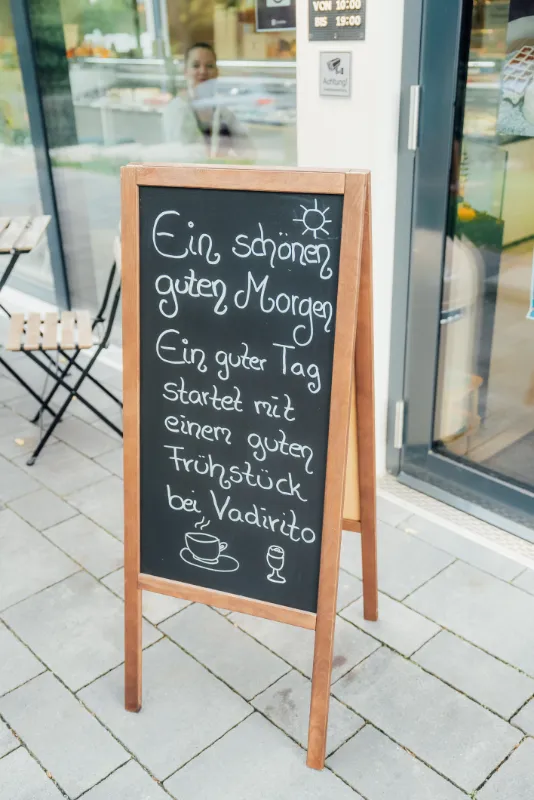 VON 10:00
BIS 19:00
Achtung!
Ein schönen
guten Morgen
Ein guter Tag
startet mit
einem guten
Frühstück
bei Vadirito